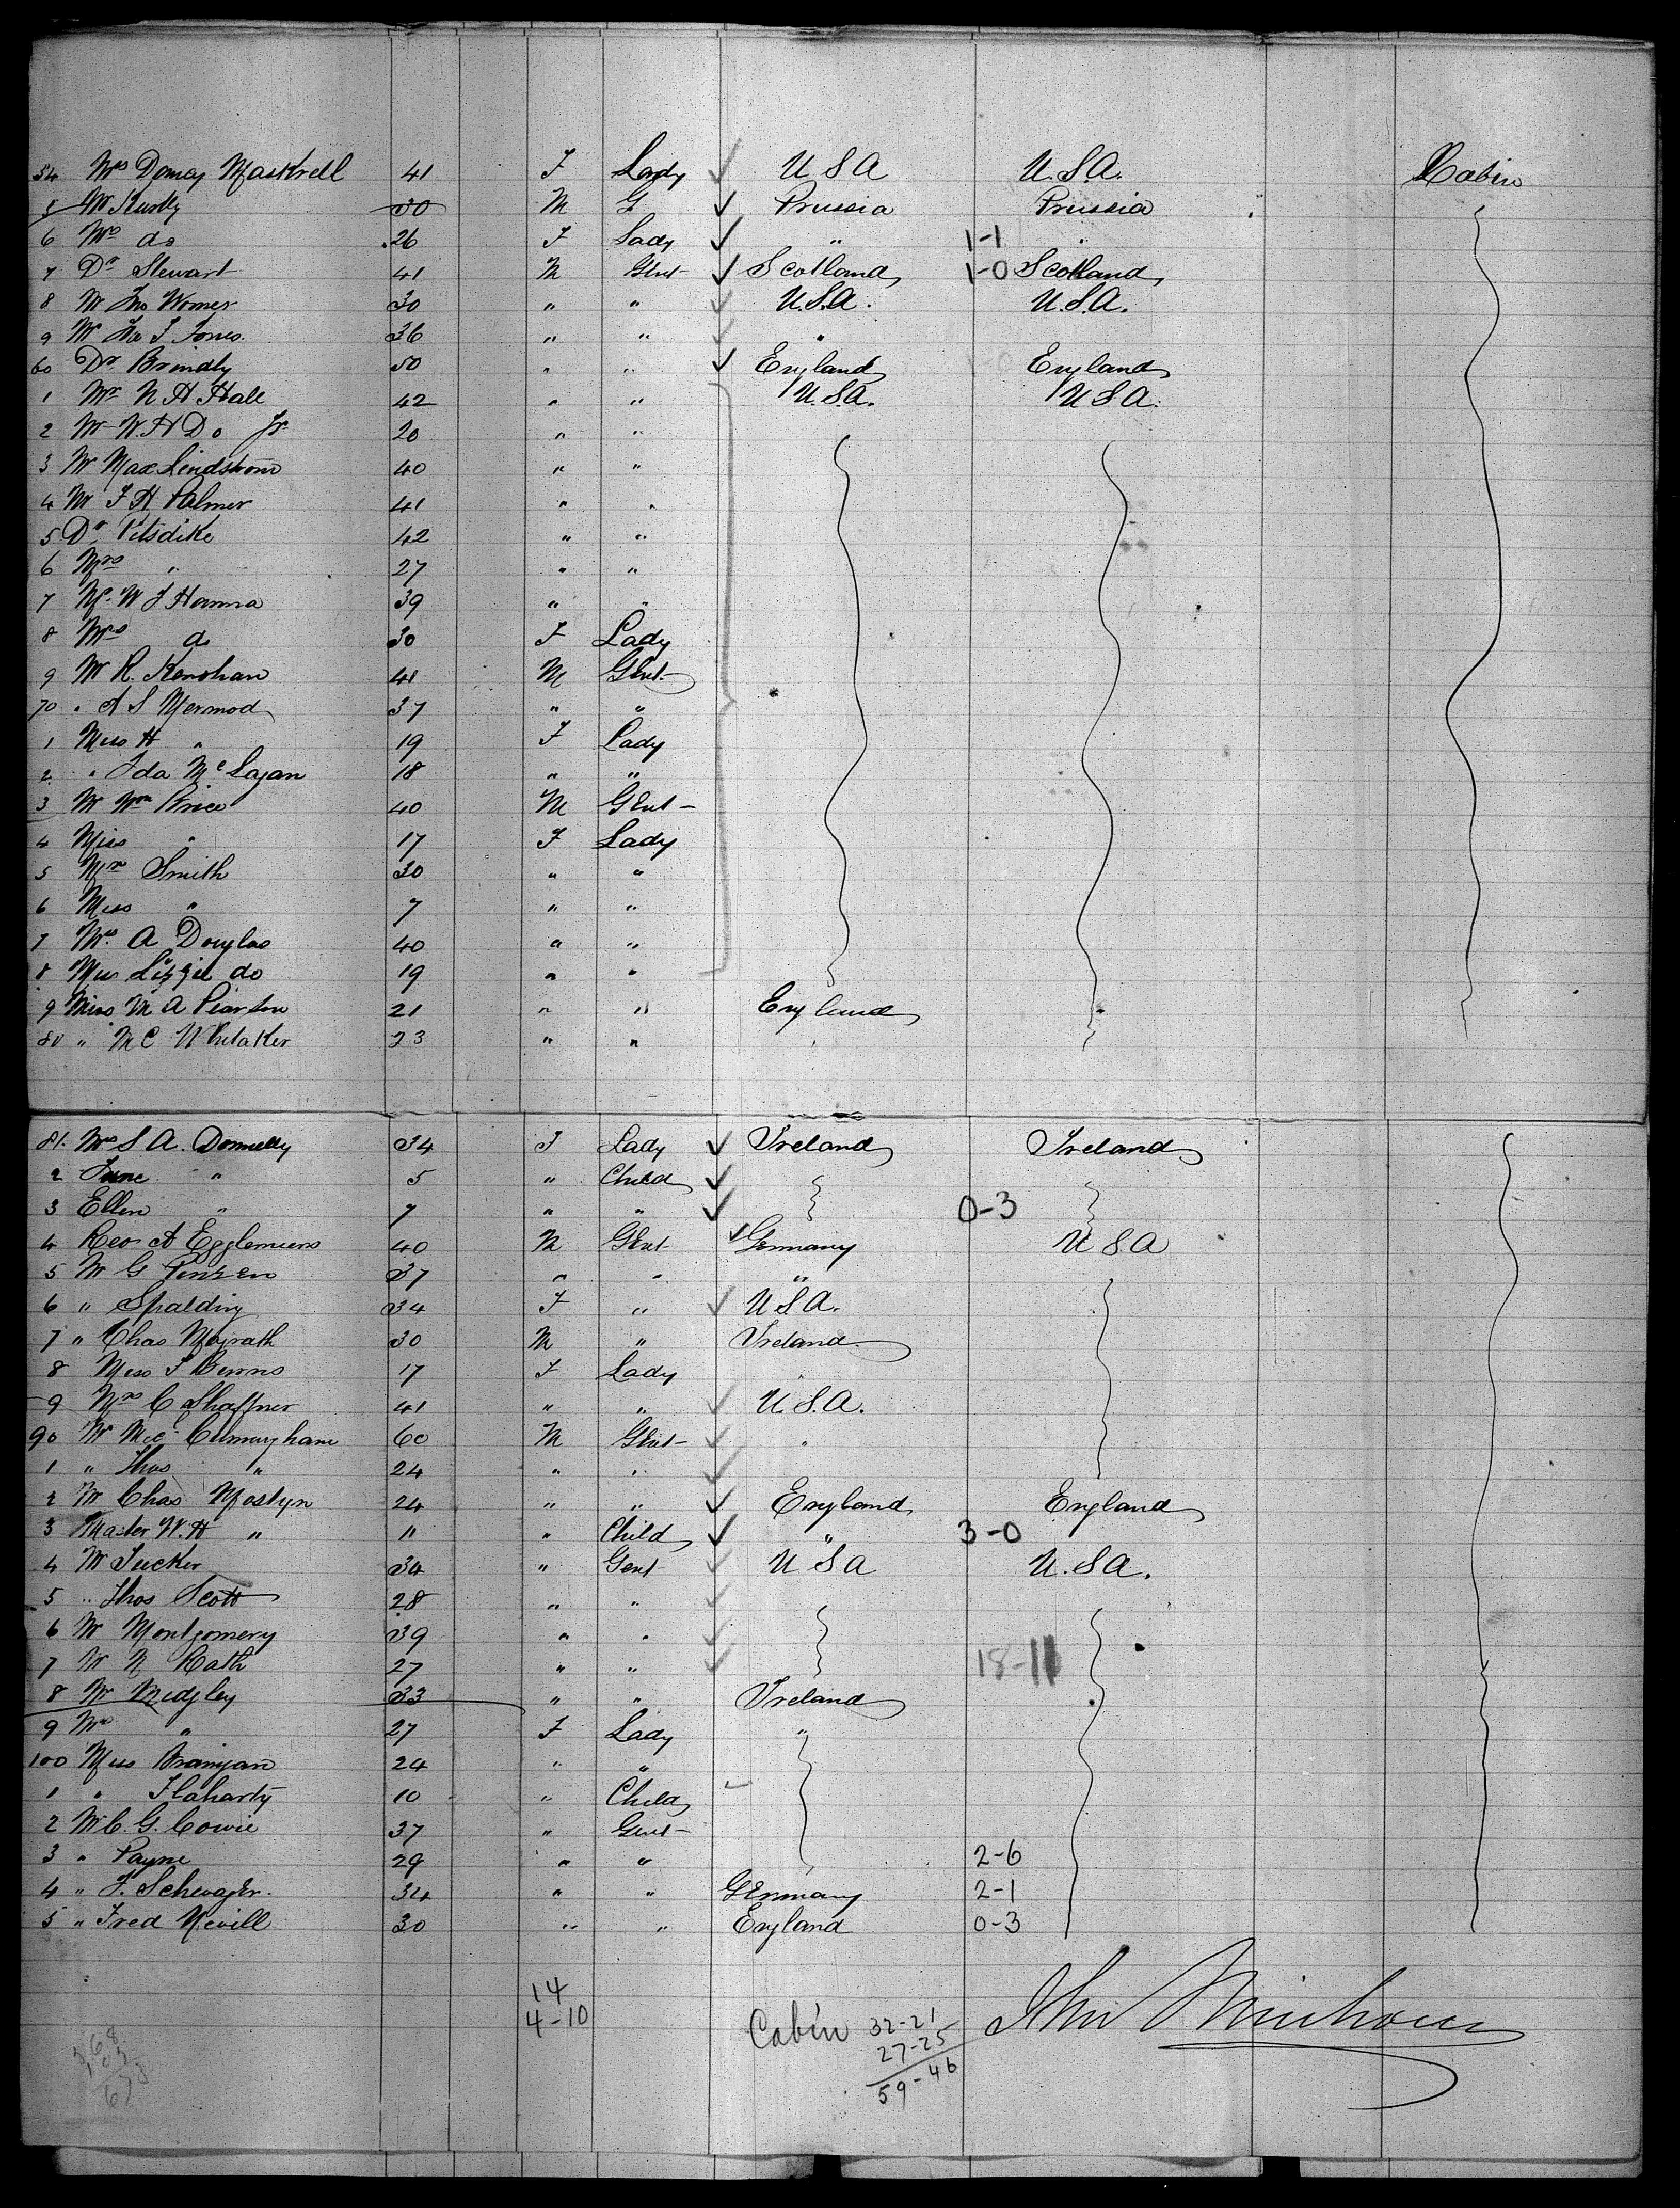 54 Mrs Domaj Maskrell 41 F Lady U S A U.S.A. Cabin
5 Mr Hurdly 30 M G Prussia Prussia
6 Mrs do 26 F Lady " 1-1 "
7 Dr Stewart 41 M Gent Scotland 1-0 Scotland
8 Mr Jno Womer 30 " " U.S.A. U.S.A.
9 Mr Jno I Jones 36 " " "
60 Dr Brindly 50 " " England England
1 Mr N H Hall 42 " " U.S.A. U S A.
2 Mr W. H Do Jr 20 " "
3 Mr Max Lindstrom 40 " "
4 Mr F H Palmer 41 " "
5 Dr Pitsdike 42 " "
6 Mrs " 27 " "
7 Mr W J Hanna 39 " "
8 Mrs do 30 F Lady
9 Mr R. Kershaw 41 M Gent
70 " A S Mermod 37 " "
1 Miss H " 19 F Lady
2 " Ida McLagan 18 " "
3 Mr Wm Price 40 M Gent
4 Miss " 17 F Lady
5 Mrs Smith 30 " "
6 Miss " 7 " "
7 Mrs. A Douglas 40 " "
8 Miss Lizzie do 19 " "
9 Miss M A Pearson 21 " " England
80 " M C Whitaker 23 " "
81. Mrs S A. Donnelly 34 F Lady Ireland Ireland
2 Jane " 5 " Child
3 Ellen " 7 " " 0-3
4 Rev A Egglemiers 40 M Gent Germany U S A
5 Mr G Penzen 37 " " "
6 " Spalding 34 F " U S A.
7 " Chas Magrath 30 M " Ireland
8 Miss F Burns 17 F Lady
9 Mrs C Shaffner 41 " " U.S.A.
90 Mr Cunningham 60 M Gent "
1 " Thos " 24 " "
2 Mr Chas Mostyn 24 " " England England
3 Master W. H " 11 " Child " 3-0
4 Mr Tucker 34 " Gent U S A U.S.A.
5 " Thos Scott 28 " "
6 Mr Montgomery 39 " "
7 Mr N Rath 27 " " 18-11
8 Mr Midgley 33 " " Ireland
9 Mrs " 27 F Lady "
100 Miss Branigan 24 " "
1 " Flaharty 10 " Child
2 Mr C. G. Cowie 37 " Gent
3 " Payne 29 " " 2-6
4 " F. Schwager 34 " " Germany 2-1
5 " Fred Nevill 30 " " England 0-3
14
4-10
Cabin 32-21
27-25
59-46